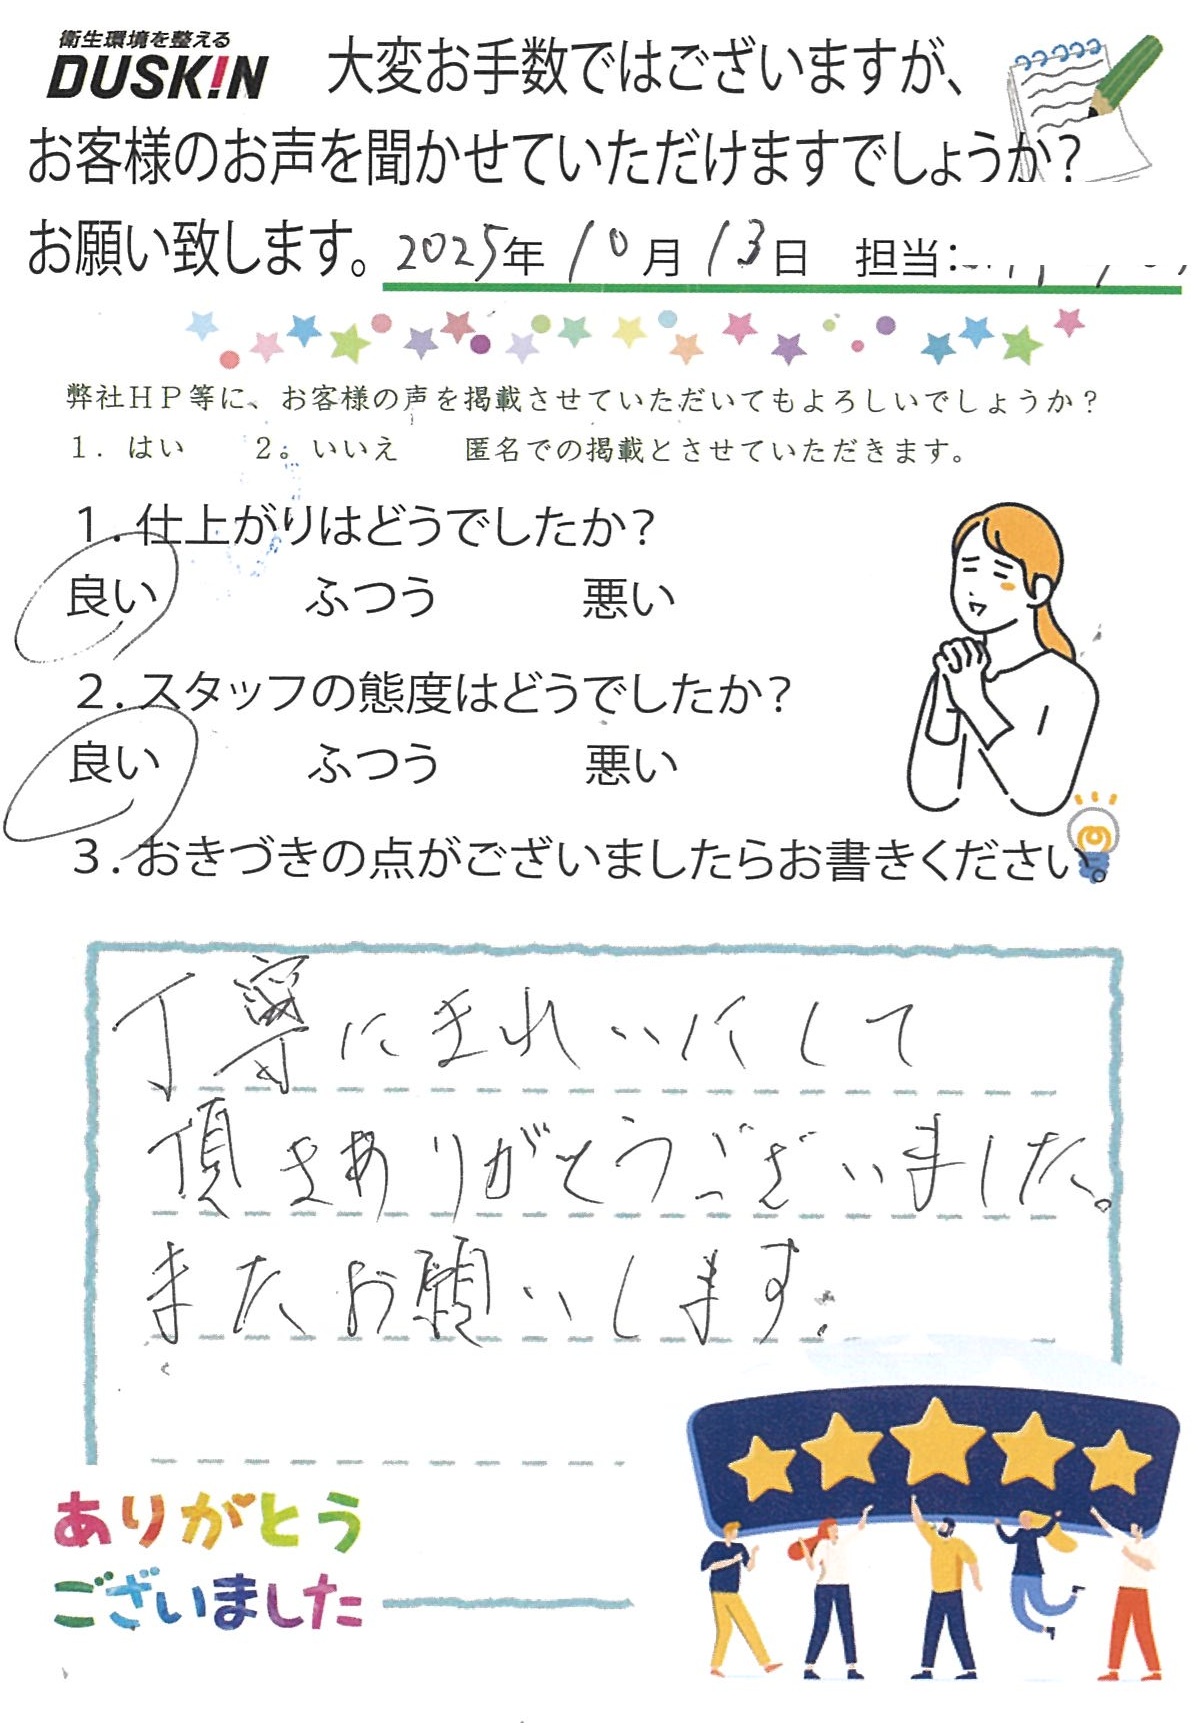 衛生環境を整える
DUSKIN 大変お手数ではございますが、
お客様のお声を聞かせていただけますでしょうか？
お願い致します。2025年10月13日 担当：
弊社ＨＰ等に、お客様の声を掲載させていただいてもよろしいでしょうか？
１．はい ２。いいえ 匿名での掲載とさせていただきます。
１．仕上がりはどうでしたか？
良い ふつう 悪い
２．スタッフの態度はどうでしたか？
良い ふつう 悪い
３．おきづきの点がございましたらお書きください。
丁寧にきれいにして
頂きありがとうございました。
またお願いします。
ありがとう
ございました